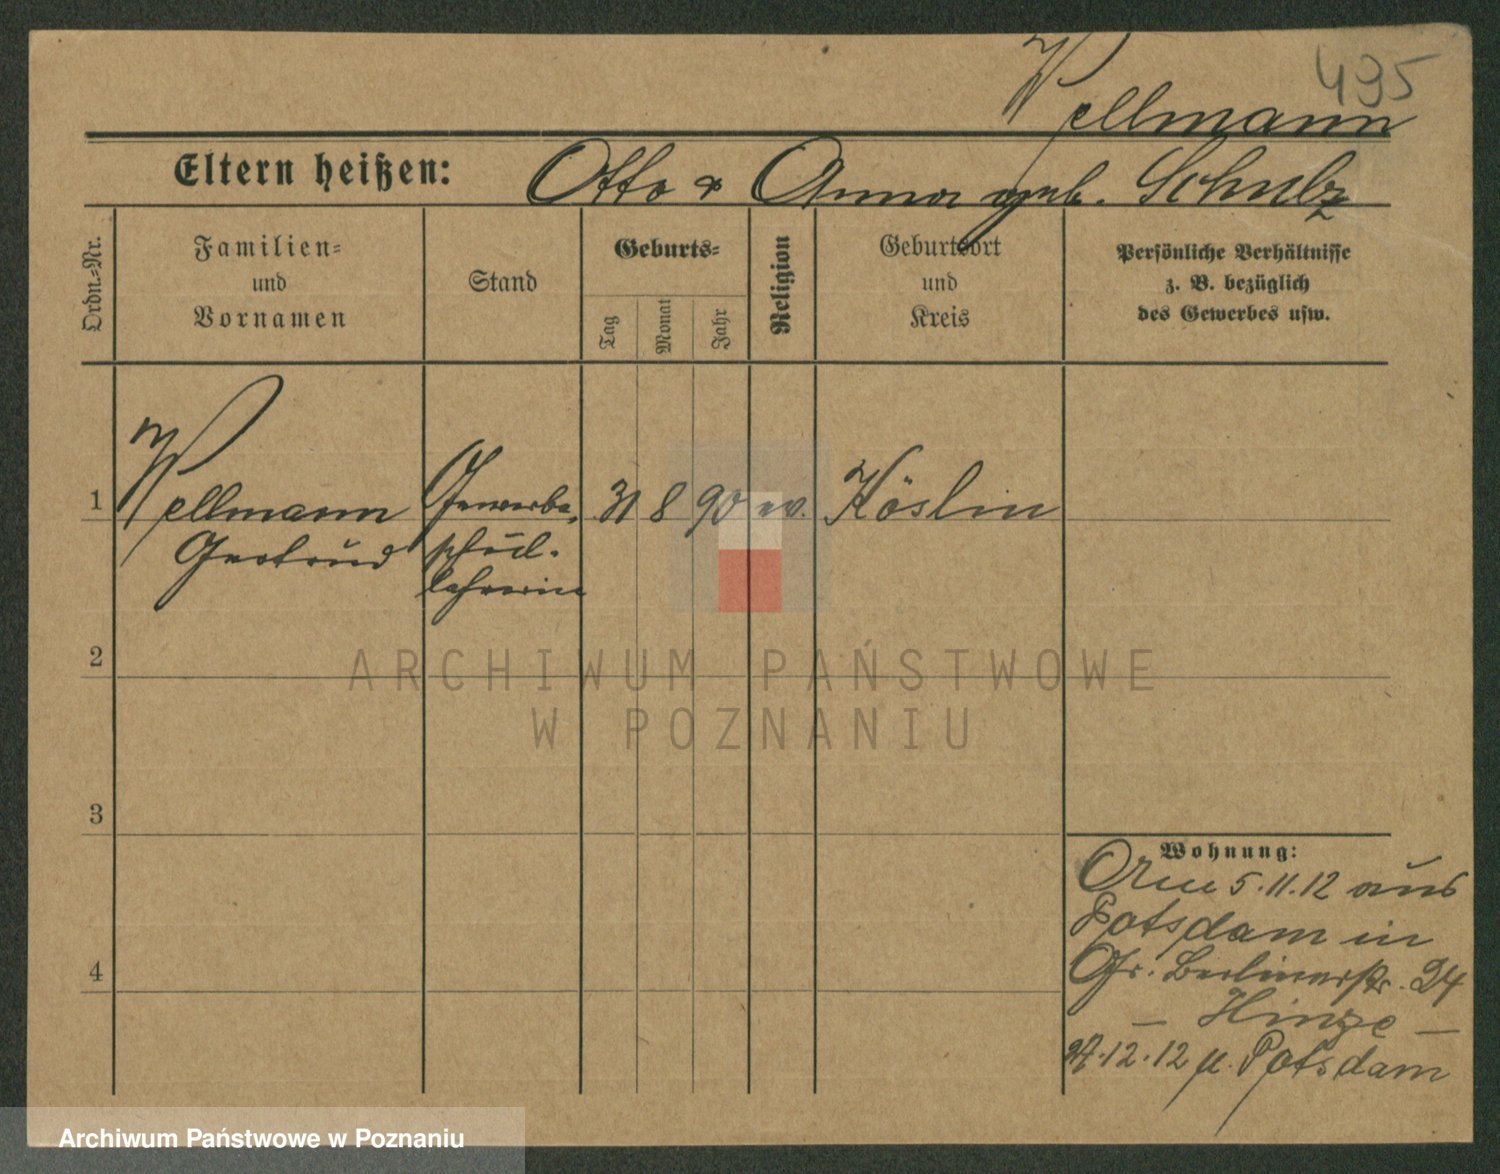 495
Wellmann
Eltern heißen: Otto & Anna geb. Schulz
Ordn.-Nr.
Familien-
und
Vornamen
Stand
Geburts-
Tag
Monat
Jahr
Religion
Geburtsort
und
Kreis
Persönliche Verhältnisse
z. B. bezüglich
des Gewerbes usw.
1 Wellmann Gewerbe- 31 8 90 ev. Köslin
Gertrud schul-
lehrerin
2
3
4
Wohnung:
5.11.12 aus
Potsdam in
Gr. Berlinerstr. 24
— Hinze —
.12.12 n. Potsdam
ARCHIWUM PAŃSTWOWE
W POZNANIU
Archiwum Państwowe w Poznaniu